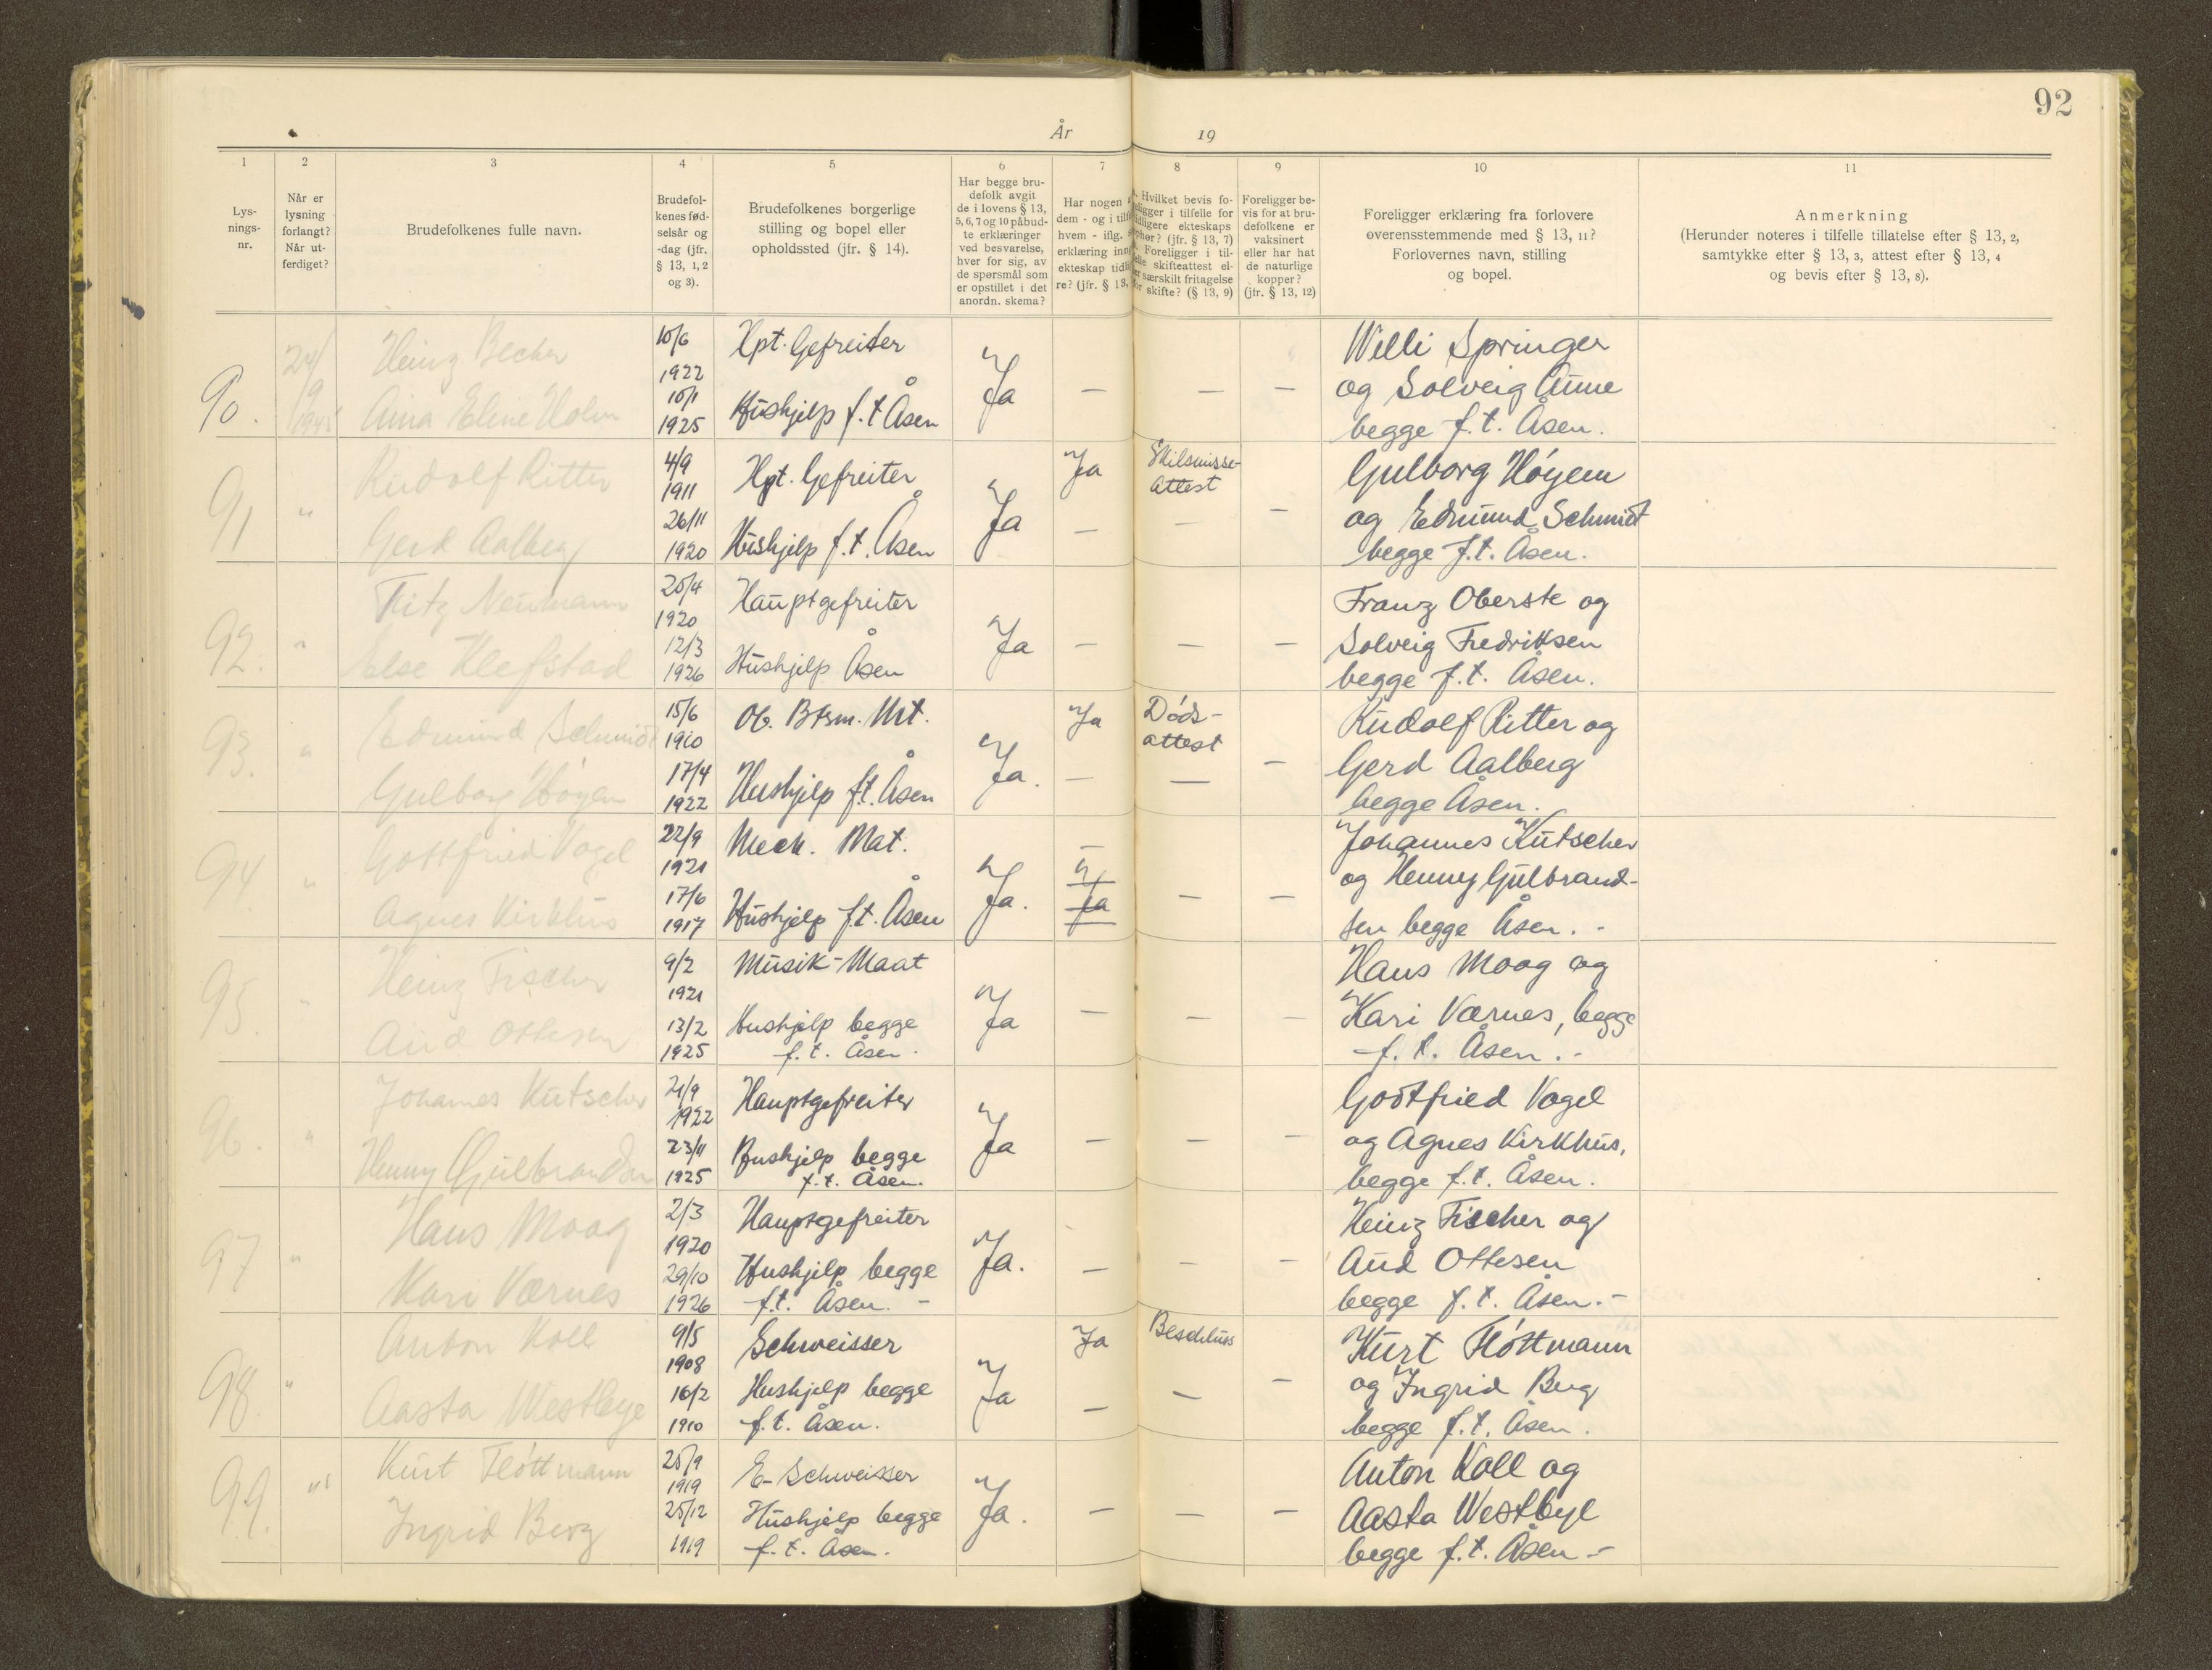 92
År 19
1 2 3 4 5 6 7 8 9 10 11
Lys-
nings-
nr.
Når er
lysning
forlangt?
Når ut-
ferdiget?
Brudefolkenes fulle navn.
Brudefol-
kenes fød-
selsår og
-dag (jfr.
§ 13, 1, 2
og 3).
Brudefolkenes borgerlige
stilling og bopel eller
opholdssted (jfr. § 14).
Har begge bru-
defolk avgit
de i lovens § 13,
5, 6, 7 og 10 påbud-
te erklæringer
ved besvarelse,
hver for sig, av
de spørsmål som
er opstillet i det
anordn. skema?
Har nogen
dem - og i tilf
hvem - iflg.
erklæring inn
ekteskap tidl
re? (jfr. § 13,
Hvilket bevis fo-
religger i tilfelle for
tidligere ekteskaps
ophør? (jfr. § 13, 7)
Foreligger i til-
felle skifteattest el-
ler særskilt fritagelse
for skifte? (§ 13, 9)
Foreligger be-
vis for at bru-
defolkene er
vaksinert
eller har hat
de naturlige
kopper?
(jfr. § 13, 12)
Foreligger erklæring fra forlovere
overensstemmende med § 13, 11?
Forlovernes navn, stilling
og bopel.
Anmerkning
(Herunder noteres i tilfelle tillatelse efter § 13, 2,
samtykke efter § 13, 3, attest efter § 13, 4
og bevis efter § 13, 8).
90.
24/9
1945
Heinz Becher
Aina Elene Holm
10/6
1922
10/1
1925
Hpt. Gefreiter
Hushjelp f.t Åsen
Ja
—
—
—
Willi Springer
og Solveig Aune
begge f.t. Åsen.
91
"
Rudolf Ritter
Gerd Aalberg
4/9
1911
26/11
1920
Hpt. Gefreiter
Hushjelp f.t. Åsen
Ja
Ja
—
Skilsmisse-
attest
—
—
Gulborg Höyem
og Edmund Schmidt
begge f.t. Åsen.
92.
"
Fritz Neumann
Else Klefstad
20/4
1920
12/3
1926
Hauptgefreiter
Hushjelp Åsen
Ja
—
—
—
Franz Oberste og
Solveig Fredriksen
begge f.t. Åsen.
93.
"
Edmund Schmidt
Gulborg Höyem
15/6
1910
17/4
1922
Ob. Btsm. Mt.
Hushjelp f.t. Åsen
Ja.
Ja
—
Döds-
attest
—
—
Rudolf Ritter og
Gerd Aalberg
begge Åsen.
94
"
Gottfried Vogel
Agnes Kirkhus
22/9
1921
17/6
1917
Mech. Mat.
Hushjelp f.t. Åsen
Ja.
—
Ja
—
—
Johannes Kutscher
og Henny Gulbrand-
sen begge Åsen. -
95.
"
Heinz Fischer
Aud Ottesen
9/2
1921
13/2
1925
Musik-Maat
Hushjelp begge
f.t. Åsen.
Ja
—
—
—
Hans Moog og
Kari Værnes, begge
f.t. Åsen. -
96.
"
Johannes Kutscher
Henny Gulbrandsen
21/9
1922
23/11
1925
Hauptgefreiter
Hushjelp begge
f.t. Åsen.
Ja
—
—
—
Gottfried Vogel
og Agnes Kirkhus,
begge f.t. Åsen.
97
"
Hans Moog
Kari Værnes
2/3
1920
29/10
1926
Hauptgefreiter
Hushjelp begge
f.t. Åsen. -
Ja.
—
—
—
Heinz Fischer og
Aud Ottesen
begge f.t. Åsen. -
98.
"
Anton Koll
Aasta Westbye
9/5
1908
16/2
1910
Schweisser
Hushjelp begge
f.t. Åsen.
Ja
Ja
—
Beschluss
—
—
Kurt Flöttmann
og Ingrid Berg
begge f.t. Åsen.
99.
"
Kurt Flöttmann
Ingrid Berg
25/9
1919
25/12
1919
E-Schweisser
Hushjelp begge
f.t. Åsen.
Ja.
—
—
—
Anton Koll og
Aasta Westbye
begge f.t. Åsen -